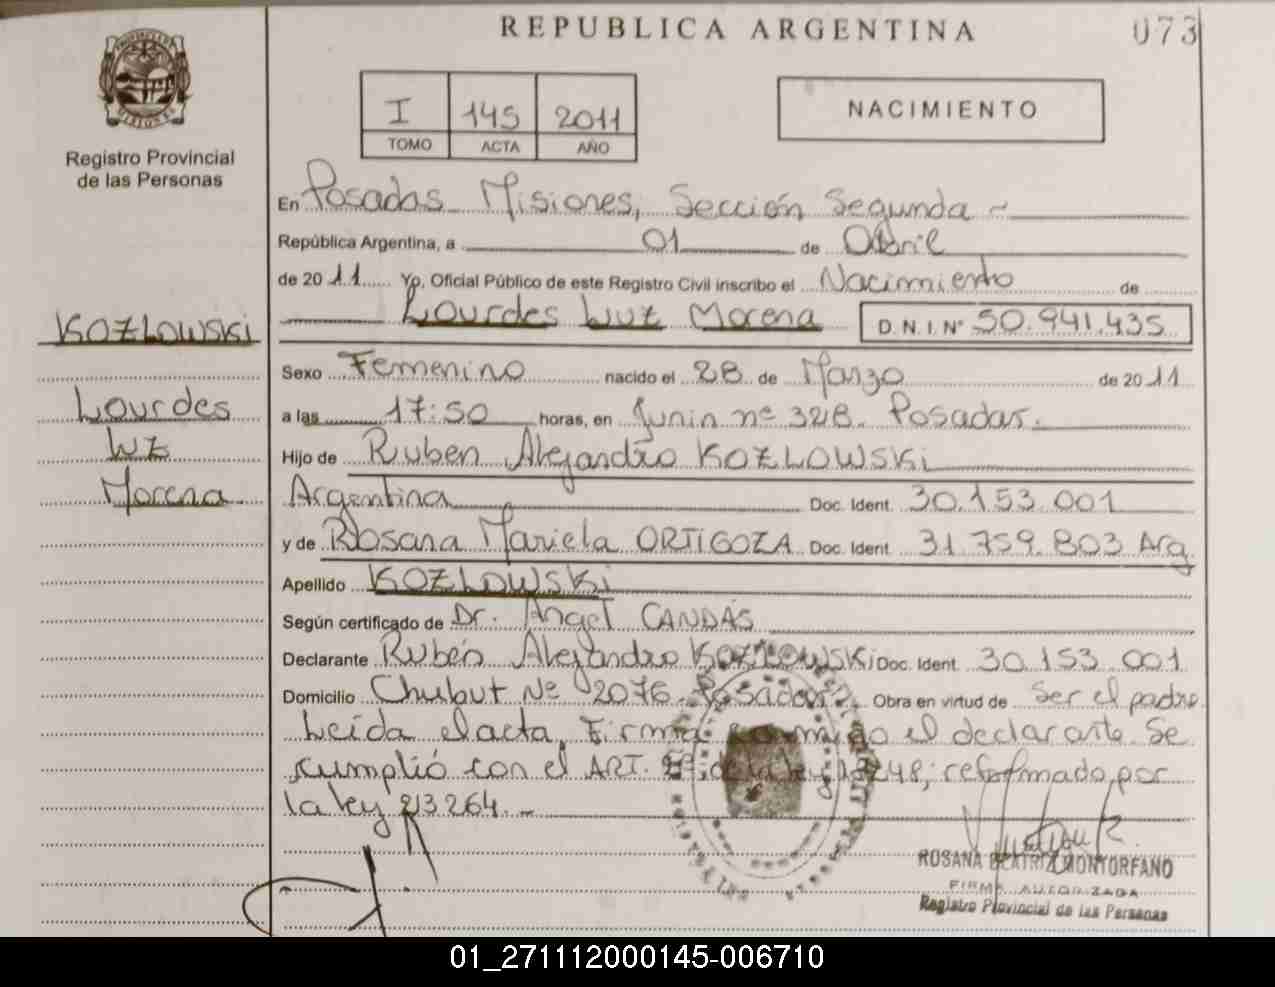 REPUBLICA ARGENTINA
073
I 145 2011
TOMO ACTA AÑO
NACIMIENTO
MISIONES
Registro Provincial
de las Personas
En Posadas Misiones, Sección Segunda
República Argentina, a 01 de Abril
de 2011 Yo, Oficial Público de este Registro Civil inscribo el Nacimiento de
Lourdes Luz Morena D.N.I.Nº 50.941.435
KOZLOWSKi
Lourdes
Luz
Morena
Sexo Femenino nacido el 28 de Marzo de 2011
a las 17:50 horas, en Junin nº 328. Posadas.
Hijo de Ruben Alejandro KOZLOWSKi
Argentina Doc. Ident. 30.153.001
y de Rosana Mariela ORTIGOZA Doc. Ident. 31.759.803 Arg
Apellido KOZLOWSKi
Según certificado de Dr. Angel CANDÁS
Declarante Rubén Alejandro KOZLOWSKi Doc. Ident. 30.153.001
Domicilio Chubut Nº 2076 Posadas. Obra en virtud de Ser el padre
Leida el acta, Firma conmigo el declarante. Se
cumplió con el ART. de la ley 18248, reformado por
la ley 23264.-
ROSANA BEATRIZ MONTORFANO
FIRMA AUTORIZADA
Registro Provincial de las Personas
01_271112000145-006710